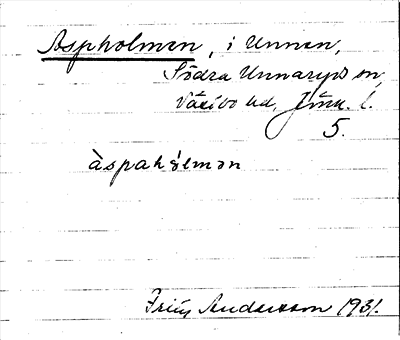 Aspholmen, i Unnen,
Södra Unnaryds sn,
Västbo hd, Jönk. l.
5.
àspahólmən
Friis Andersson 1931.